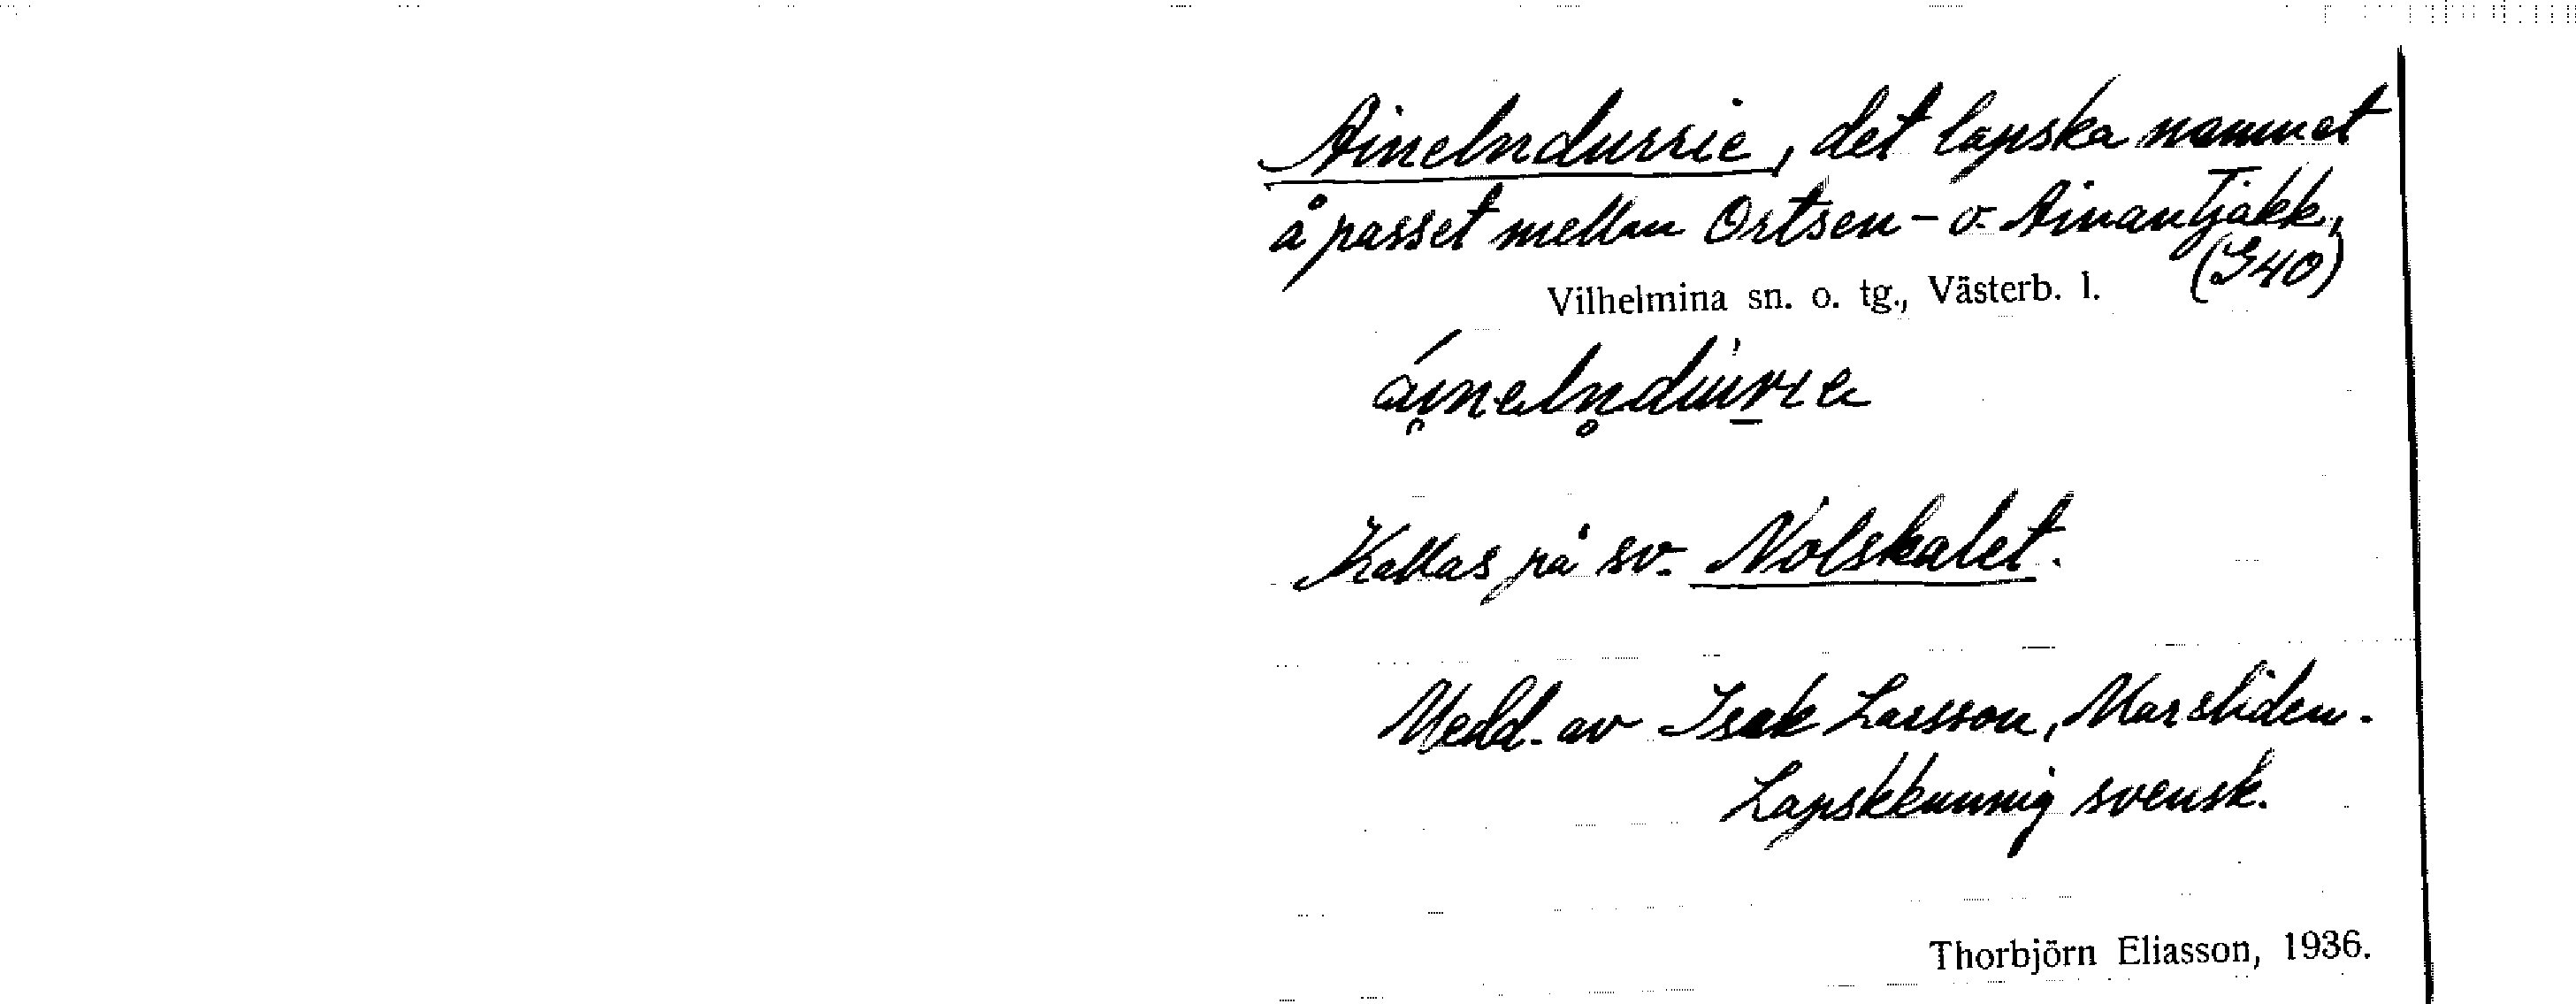 Ainelndurrie, det lapska namnet
å passet mellan Ortsen- o. Ainantjåkk,
(G40)
Vilhelmina sn. o. tg., Västerb. l.
Kallas på sv. Nolskalet.
Medd. av Isak Larsson, Marsliden.
Lapskkunnig svensk.
Thorbjörn Eliasson, 1936.